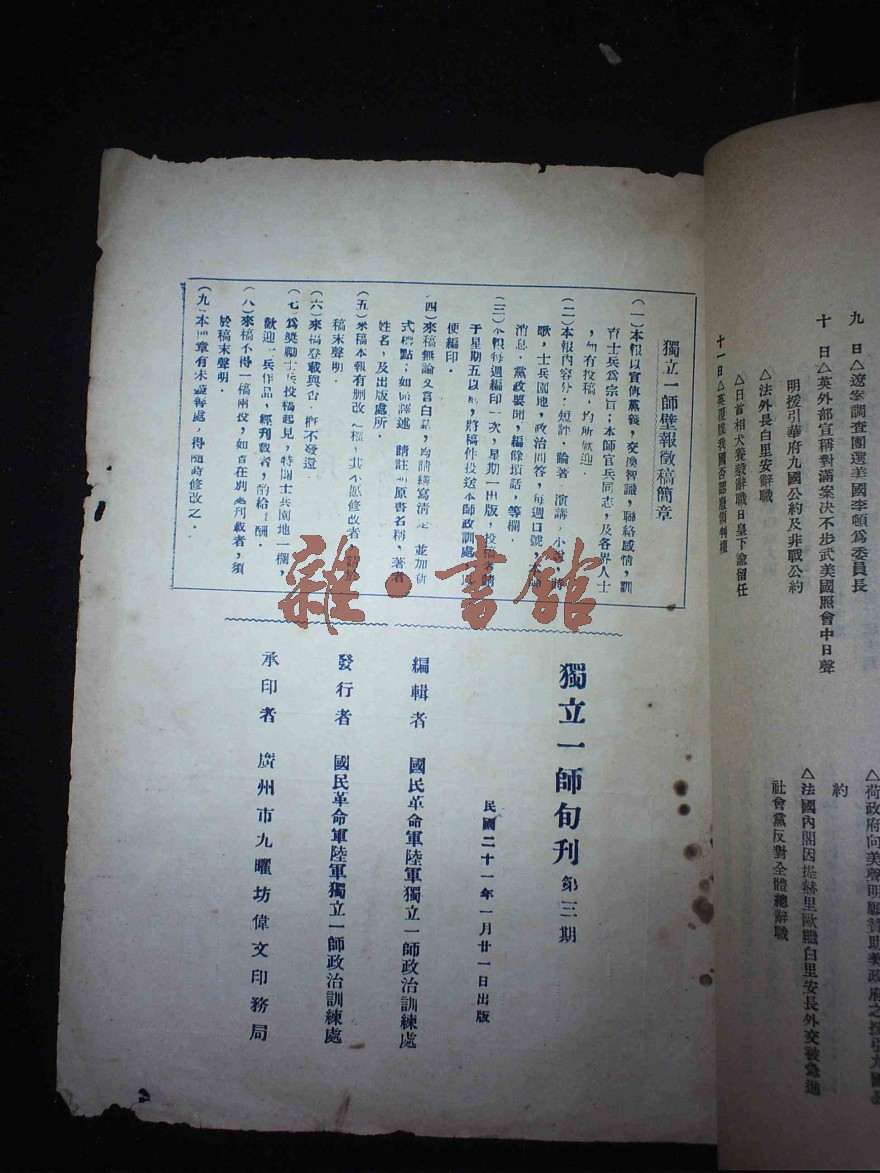 九　日△遼案調查團選美國李頓爲委員長
十　日△英外部宣稱對滿案決不步武美國照會中日聲
明援引華府九國公約及非戰公約
△法外長白里安辭職
△日首相犬養毅辭職日皇下諭留任
十一日△英 我國否認廢領判權
△荷政府向美聲明願贊助美政府之援引九國公
約
△法國內閣因挺赫里歐繼白里安長外交被急進
社會黨反對全體總辭職
獨立一師壁報徵稿簡章
（一）本報以宣傳黨義，交換智識，聯絡感情，訓
育士兵爲宗旨；本師官兵同志，及各界人士
，如有投稿，均所歡迎．
（二）本報內容分：短評，論著，演講，小說，詩
歌，士兵園地，政治問答，每週口號，本師
消息，黨政要聞，編餘瑣話，等欄．
（三）本報每週編印一次，星期一出版，投稿者請
于星期五以前，將稿件投送本師政訓處，以
便編印．
（四）來稿無論文言白話，均請繕寫清楚，並加新
式標點；如係譯述，請註明原書名稱，著者
姓名，及出版處所．
（五）來稿本報有刪改之權，其不愿修改者，請於
稿末聲明．
（六）來稿登載與否，概不發還．
（七）爲獎勵士兵投稿起見，特闢士兵園地一欄，
歡迎士兵作品，經刊載者，酌給 酬．
（八）來稿不得一稿兩投，如曾在別處刊載者，須
於稿末聲明．
（九）本簡章有未盡善處，得隨時修改之．
雜·書館
獨立一師旬刊 第三期
民國二十一年一月廿一日出版
編輯者　國民革命軍陸軍獨立一師政治訓練處
發行者　國民革命軍陸軍獨立一師政治訓練處
承印者　廣州市九曜坊偉文印務局